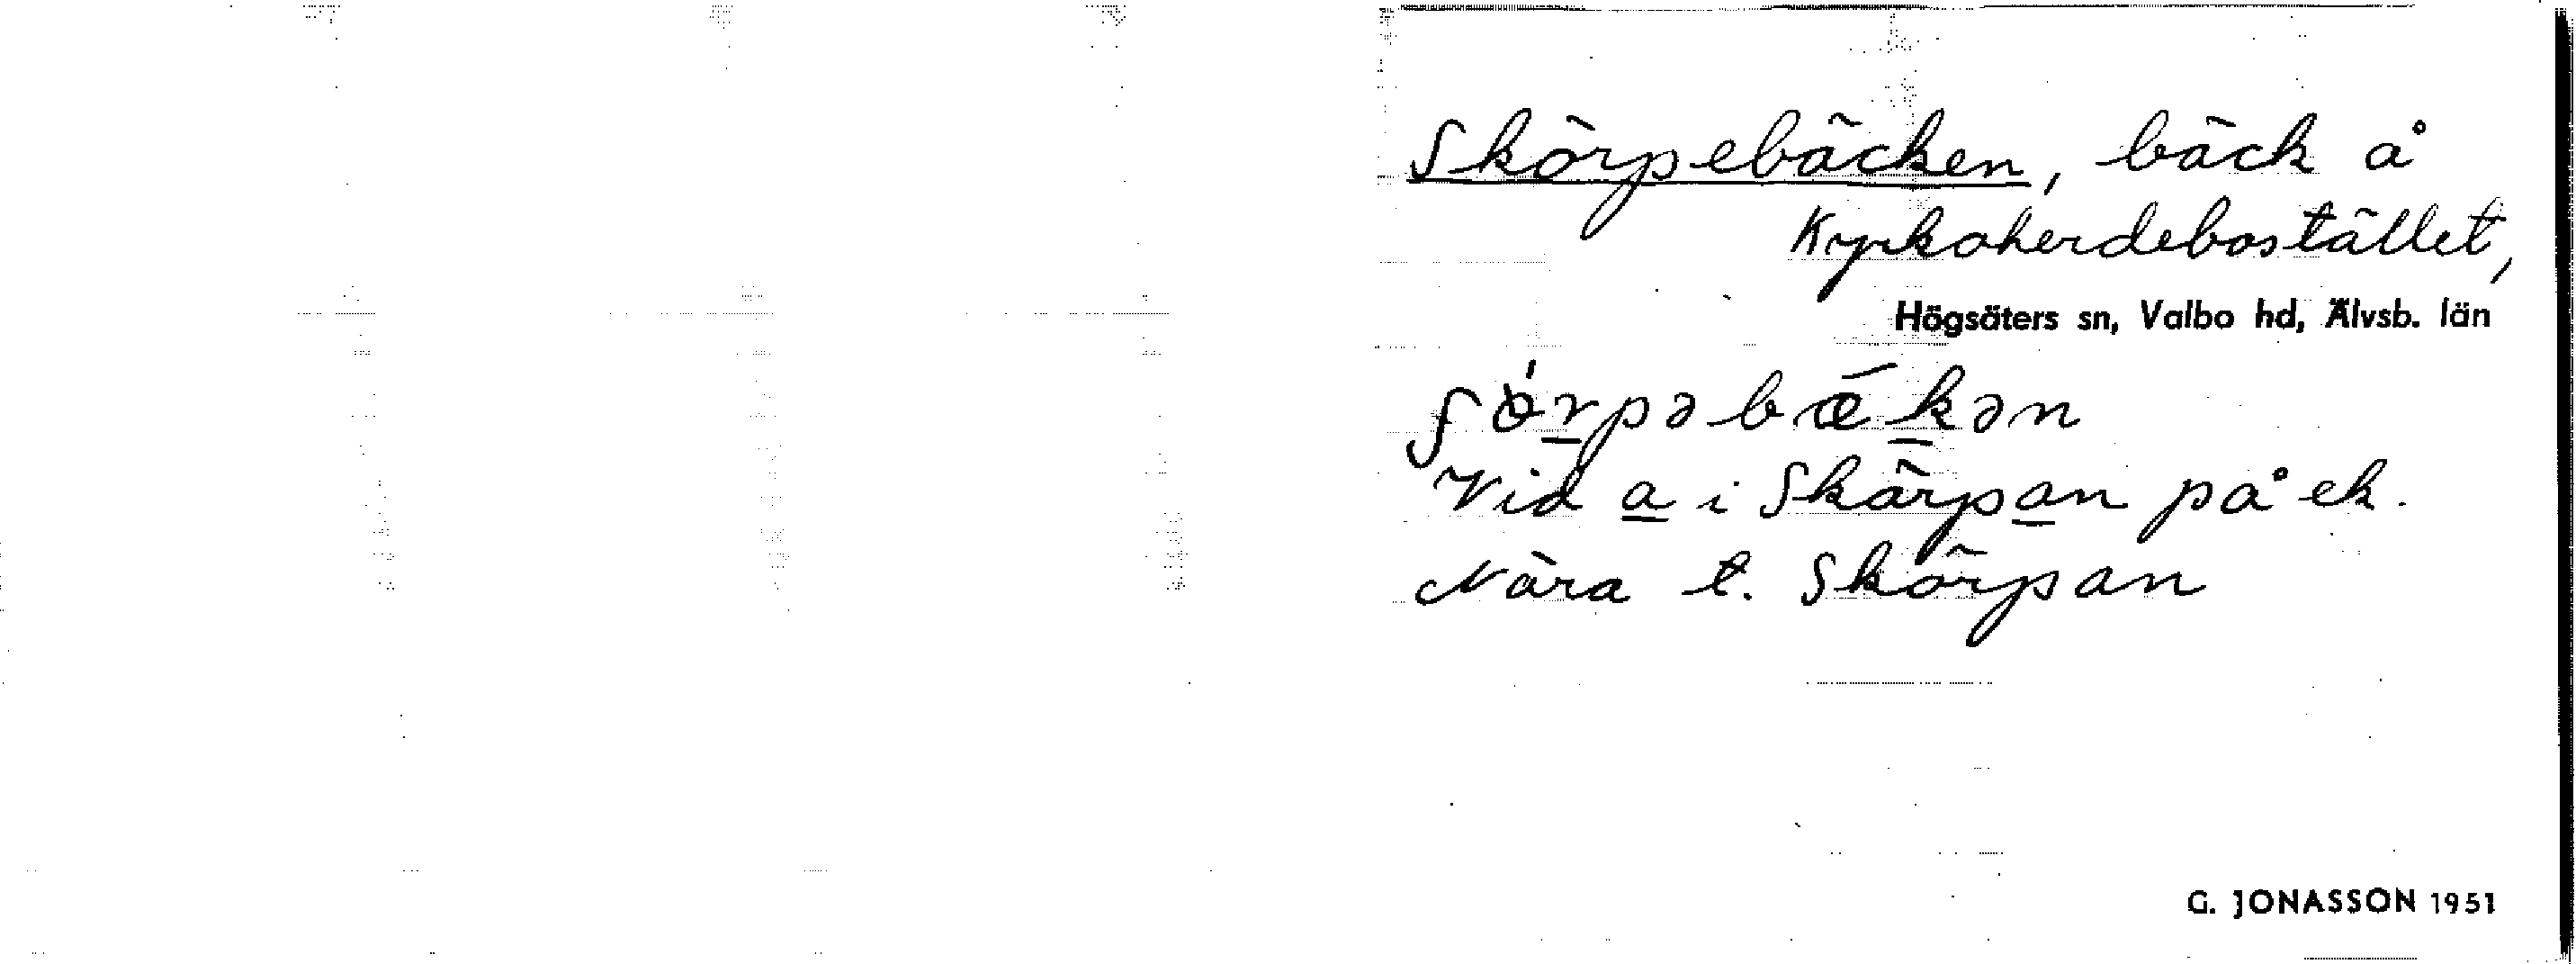 Skörpebäcken, bäck å
Kyrkoherdebostället,
Högsäters sn, Valbo hd, Älvsb. län
ʃö́rpəbǽkən
Vid a i Skärpan på ek.
Nära t. Skörpan
G. JONASSON 1951